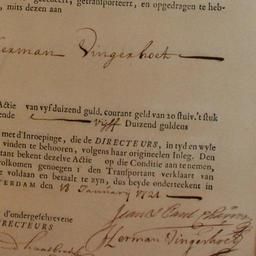 gecedeert, getransporteert, en opgedragen te heb-
, mits dezen aan
Herman Vingerhoek
Actie van vyf duizend guld. courant geld van 20 stuiv. 't stuk
ende Vyff Duizend guldens
met d'Inroepinge, die de DIRECTEURS, in tyd en wyle
vinden te behooren, volgens haar origineelen Inleg. Den
tant bekent dezelve Actie op die Conditie aan te nemen,
volkomen genoegen : den Transportant verklaart van
voldaan en betaalt te zyn, dus beyde onderteekent in
TERDAM den 18 January 1721
d'ondergeschrevene
DIRECTEURS
Herman Vingerhoek